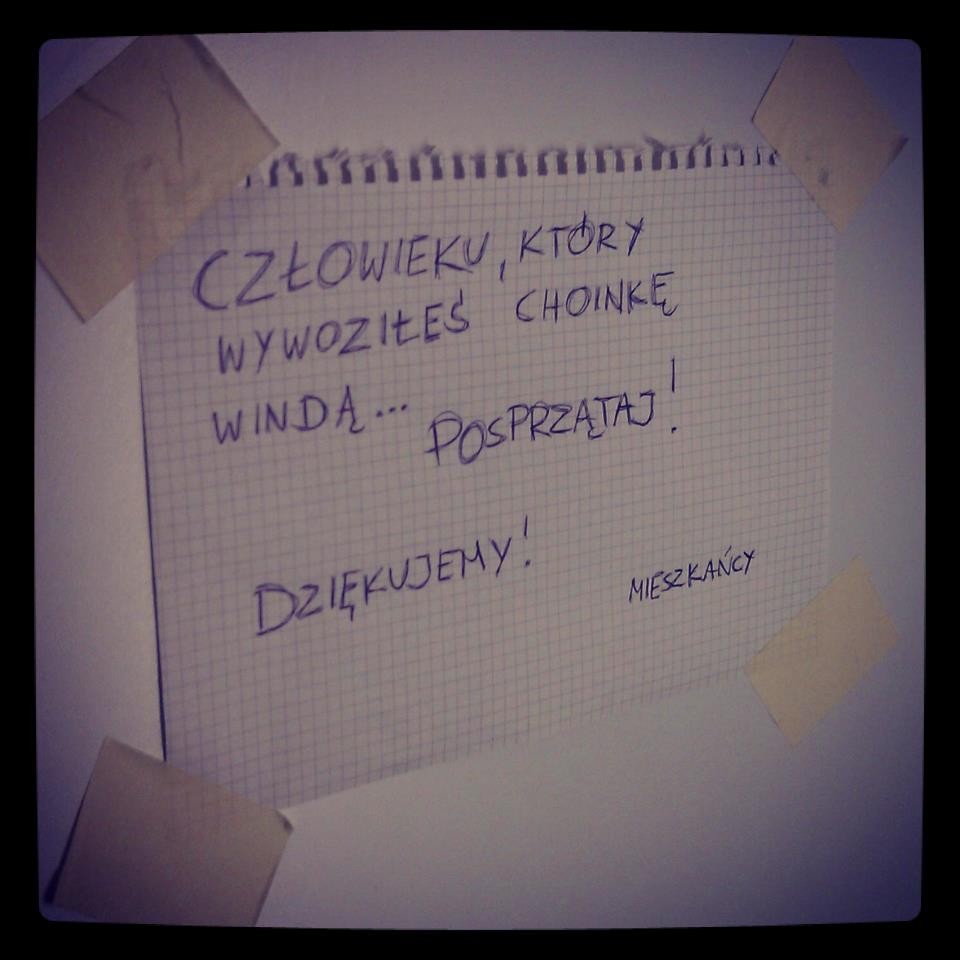 CZŁOWIEKU, KTÓRY
WYWOZIŁEŚ CHOINKĘ
WINDĄ... POSPRZĄTAJ!
DZIĘKUJEMY!
MIESZKAŃCY